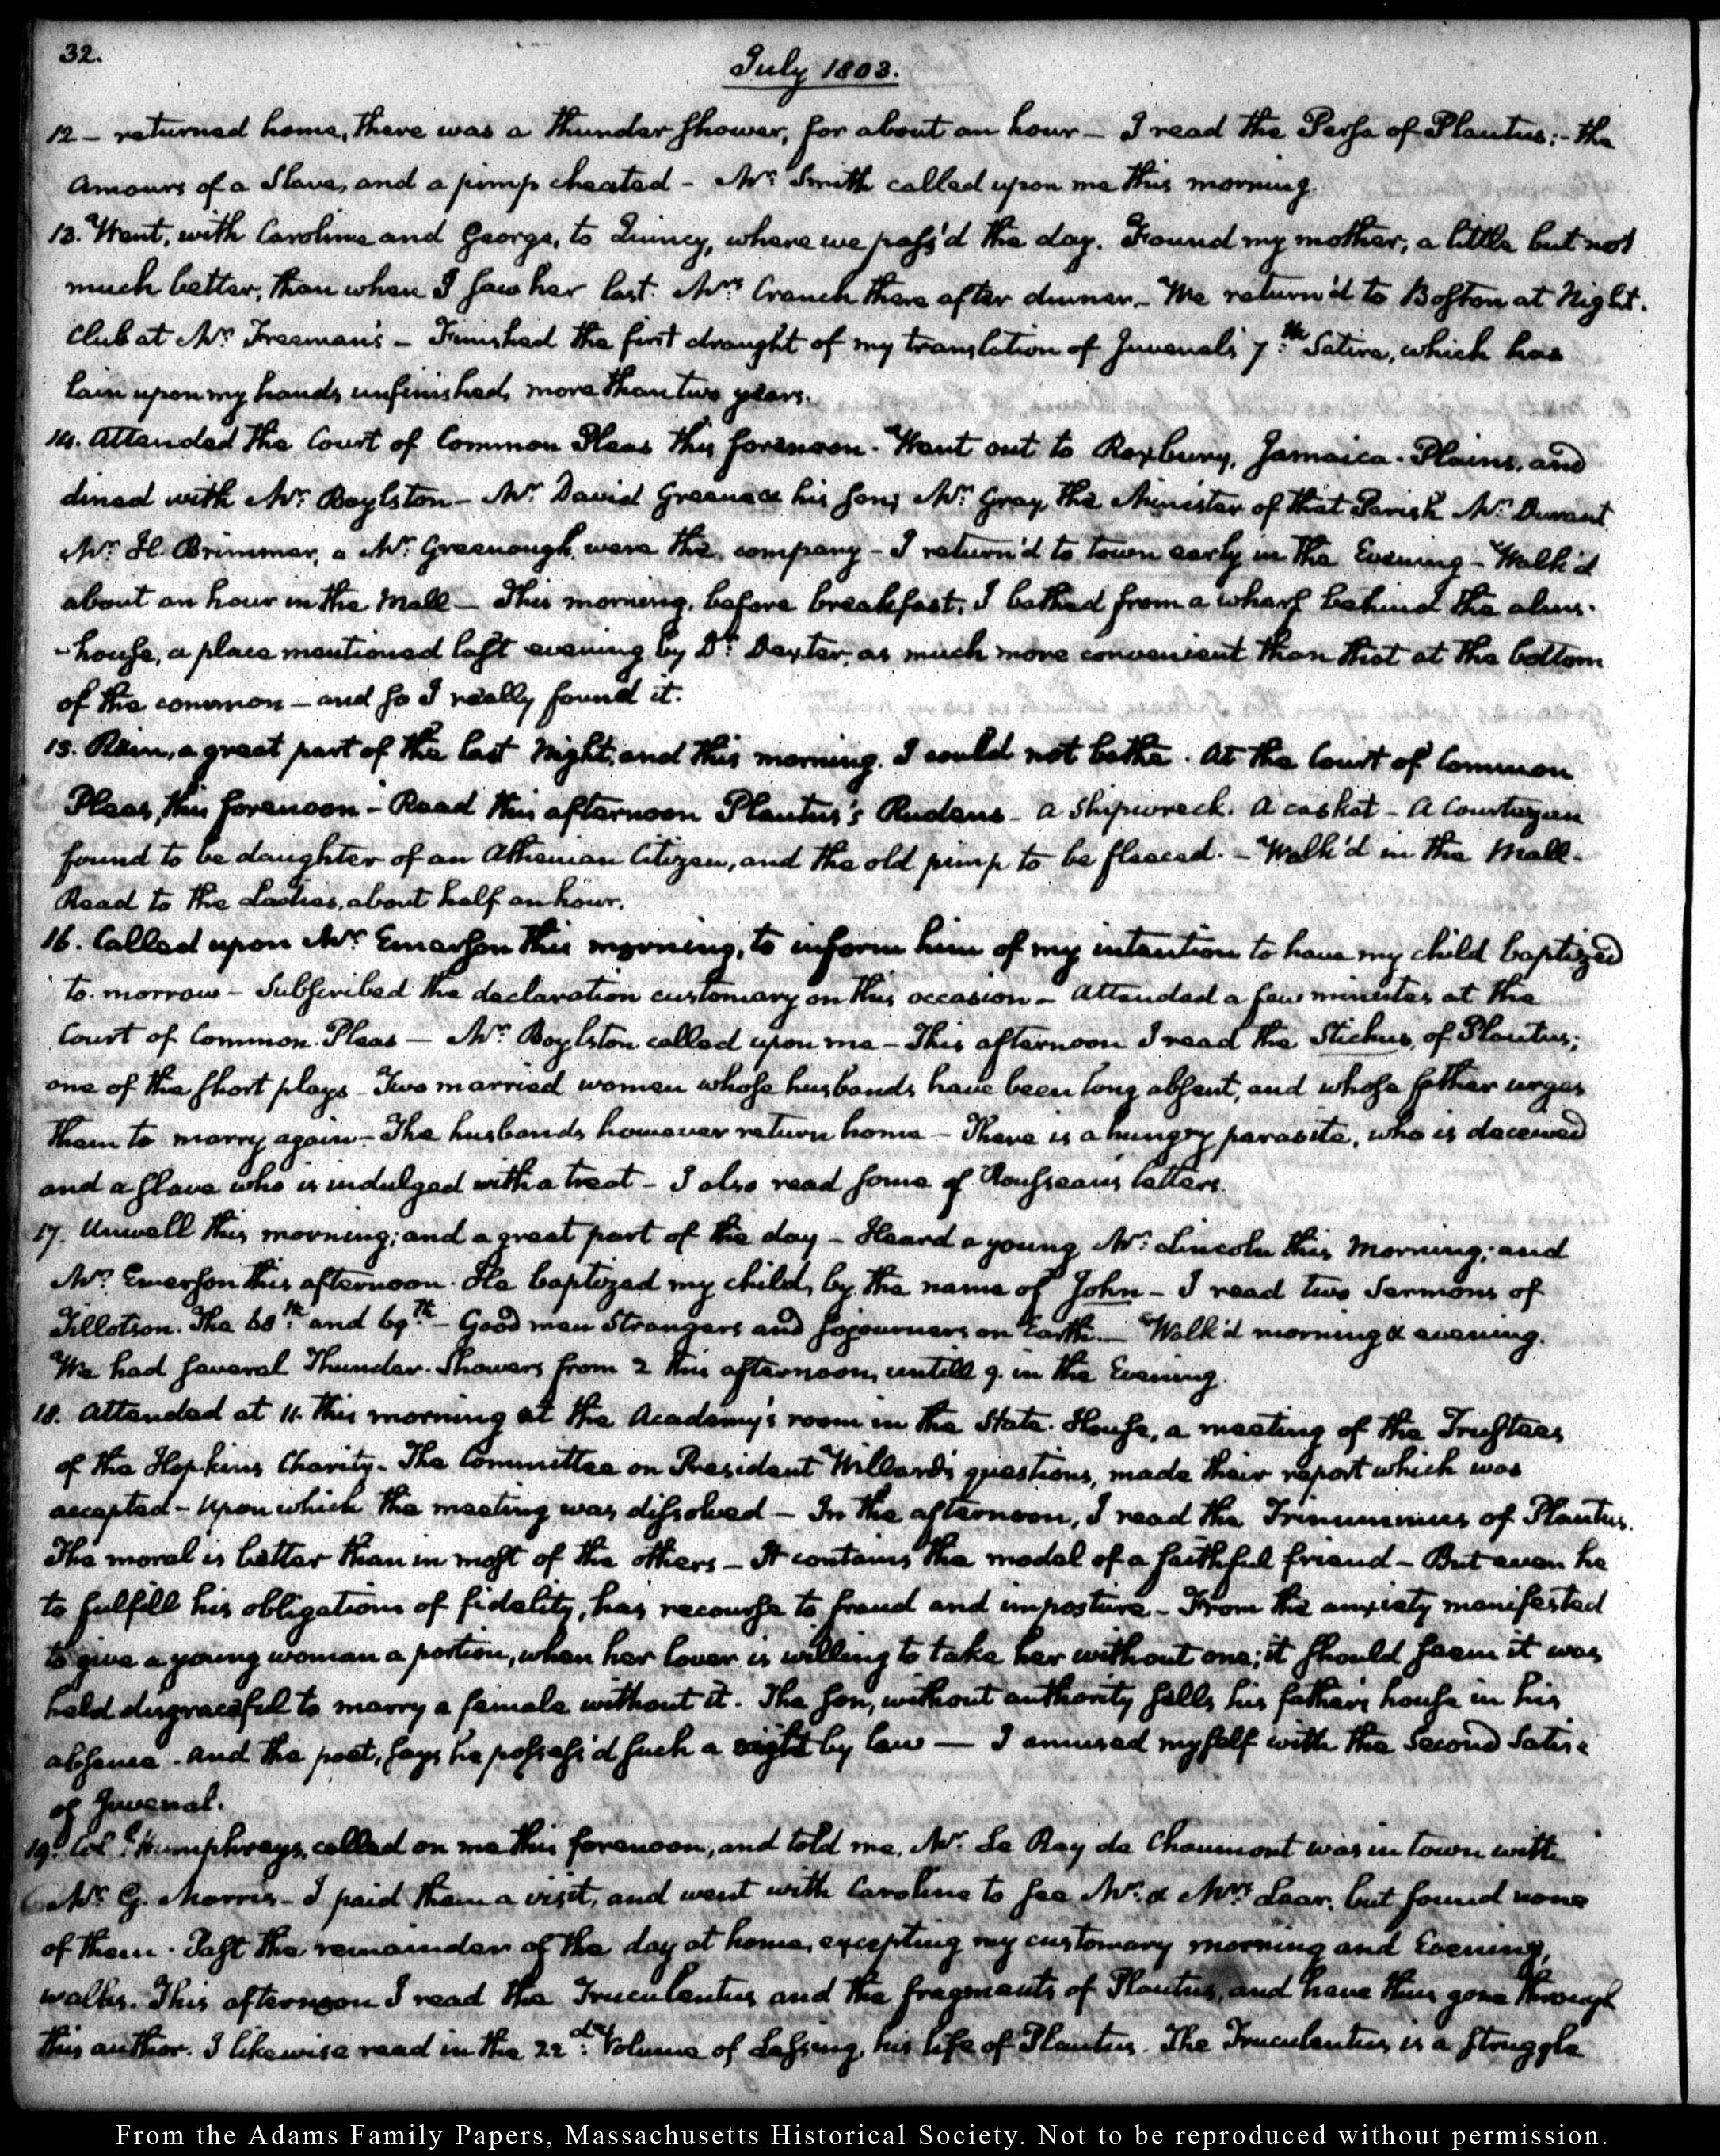 32.
July 1803.
12 – returned home, there was a thunder shower, for about an hour – I read the Persa of Plautus: – the
amours of a Slave, and a pimp cheated – Mr: Smith called upon me this morning.
13. Went, with Caroline and George, to Quincy, where we pass'd the day. Found my mother, a little but not
much better, than when I saw her last. Mrs: Cranch there after dinner – We return'd to Boston at Night.
Club at Mr: Freeman's – Finished the first draught of my translation of Juvenal's 7:th Satire, which has
lain upon my hands, unfinished, more than two years.
14. Attended the Court of Common Pleas this forenoon. Went out to Roxbury, Jamaica-Plains, and
dined with Mr: Boylston – Mr: David Greene & his son, Mr: Gray, the Minister of that Parish Mr: Durant
Mr: H. Brimmer, a Mr: Greenough, were the company – I return'd to town early in the Evening – Walk'd
about an hour in the Mall – This morning, before breakfast, I bathed from a wharf behind the alms-
-house, a place mentioned last evening by Dr: Dexter, as much more convenient than that at the bottom
of the common – and so I really found it.
15. Rain, a great part of the last Night, and this morning. I could not bathe. At the Court of Common
Pleas, this forenoon – Read this afternoon Plautus's Rudens – A Shipwreck. A casket – A Courtezan
found to be daughter of an Athenian Citizen, and the old pimp to be fleeced. – Walk'd in the Mall –
Read to the Ladies, about half an hour.
16. Called upon Mr: Emerson this morning, to inform him of my intention to have my child baptized
to-morrow – Subscribed the declaration customary on this occasion – Attended a few minutes at the
Court of Common Pleas – Mr: Boylston called upon me – This afternoon I read the Stichus, of Plautus;
one of the short plays – Two married women whose husbands have been long absent, and whose father urges
them to marry again – The husbands however return home – There is a hungry parasite, who is deceived
and a slave who is indulged with a treat – I also read some of Rousseau's letters.
17. Unwell this morning; and a great part of the day – Heard a young Mr: Lincoln this Morning; and
Mr: Emerson this afternoon. He baptized my child, by the name of John – I read two Sermons of
Tillotson. The 68:th and 69:th – Good men Strangers and Sojourners on Earth. – Walk'd morning & evening.
We had several Thunder-Showers from 2 this afternoon, untill 9. in the Evening.
18. Attended at 11. this morning at the Academy's room in the State-House, a meeting of the Trustees
of the Hopkins Charity. The Committee on President Willard's questions, made their report which was
accepted – Upon which the meeting was dissolved – In the afternoon, I read the Trinummus of Plautus.
The moral is better than in most of the others – It contains the model of a faithful friend – But even he
to fulfill his obligations of fidelity, has recourse to fraud and imposture – From the anxiety manifested
to give a young woman a portion, when her lover is willing to take her without one; it should seem it was
held disgraceful to marry a female without it. The son, without authority sells his father's house in his
absence. And the poet, says he possess'd such a right by law – I amused myself with the Second Satire
of Juvenal.
19. Coll: Humphreys, called on me this forenoon, and told me, Mr: Le Ray de Chaumont was in town with
Mr: G. Morris – I paid them a visit, and went with Caroline to see Mr: & Mrs: Lear, but found none
of them. Past the remainder of the day at home, excepting my customary morning and Evening,
walks. This afternoon I read the Truculentus and the fragments of Plautus, and have thus gone through
this author. I likewise read in the 22:d Volume of Lessing, his life of Plautus. The Truculentus is a struggle
From the Adams Family Papers, Massachusetts Historical Society. Not to be reproduced without permission.